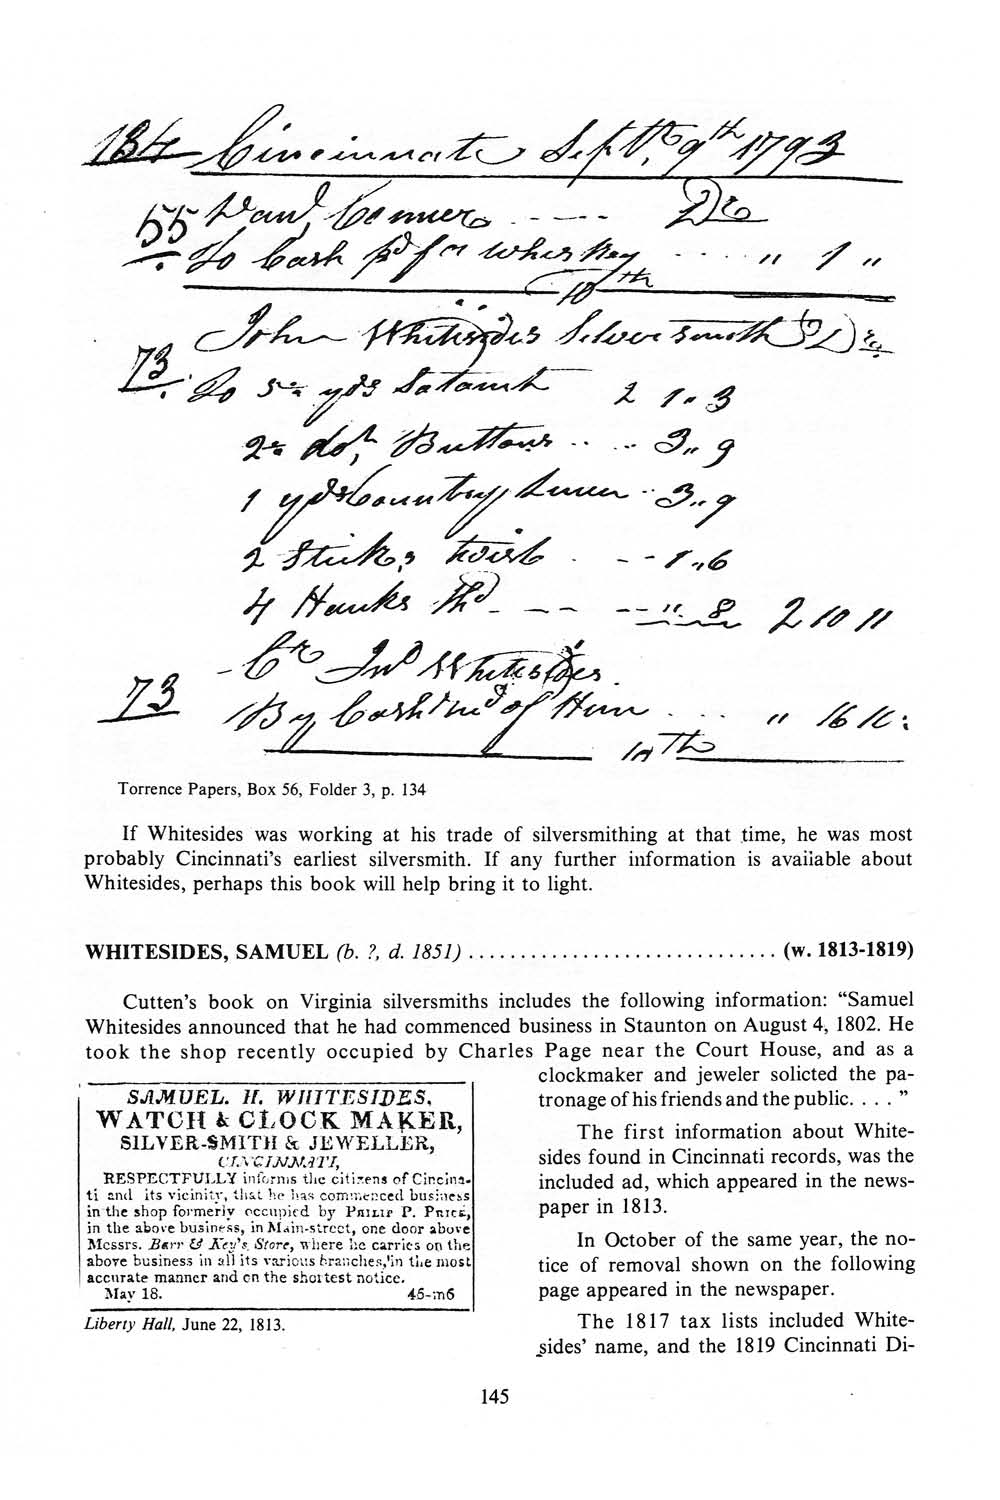 134 Cincinnati Sept. 9th 1793
55 Cr
To Cash pd for whiskey .... " 1 "
10th
73 John Whitesides Silversmith Dr.
To 5 yds 2 1 .. 3
2 doz Buttons .. .. 3 .. 9
1 yds Country Linen .. 3 .. 9
2 Sticks twist . - - 1 .. 6
4 Hanks Thd - - - - - " .. 8 2 10 11
Cr Jno Whitesides
73 By Cash of Him .... " 16
10th
Torrence Papers, Box 56, Folder 3, p. 134
If Whitesides was working at his trade of silversmithing at that time, he was most
probably Cincinnati's earliest silversmith. If any further information is avaiiable about
Whitesides, perhaps this book will help bring it to light.
WHITESIDES, SAMUEL (b. ?, d. 1851) .............................. (w. 1813-1819)
Cutten's book on Virginia silversmiths includes the following information: “Samuel
Whitesides announced that he had commenced business in Staunton on August 4, 1802. He
took the shop recently occupied by Charles Page near the Court House, and as a
clockmaker and jeweler solicted the pa-
tronage of his friends and the public. . . . ”
SAMUEL. H. WHITESIDES,
WATCH & CLOCK MAKER,
SILVER-SMITH & JEWELLER,
CINCINNATI,
RESPECTFULLY informs the citizens of Cincina-
ti and its vicinity, that he has commenced business
in the shop formerly occupied by PHILIP P. PRICE,
in the above business, in Main-street, one door above
Messrs. Barr & Key's Store, where he carries on the
above business in all its various branches, in the most
accurate manner and on the shortest notice.
May 18. 45-m6
Liberty Hall, June 22, 1813.
The first information about White-
sides found in Cincinnati records, was the
included ad, which appeared in the news-
paper in 1813.
In October of the same year, the no-
tice of removal shown on the following
page appeared in the newspaper.
The 1817 tax lists included White-
sides' name, and the 1819 Cincinnati Di-
145